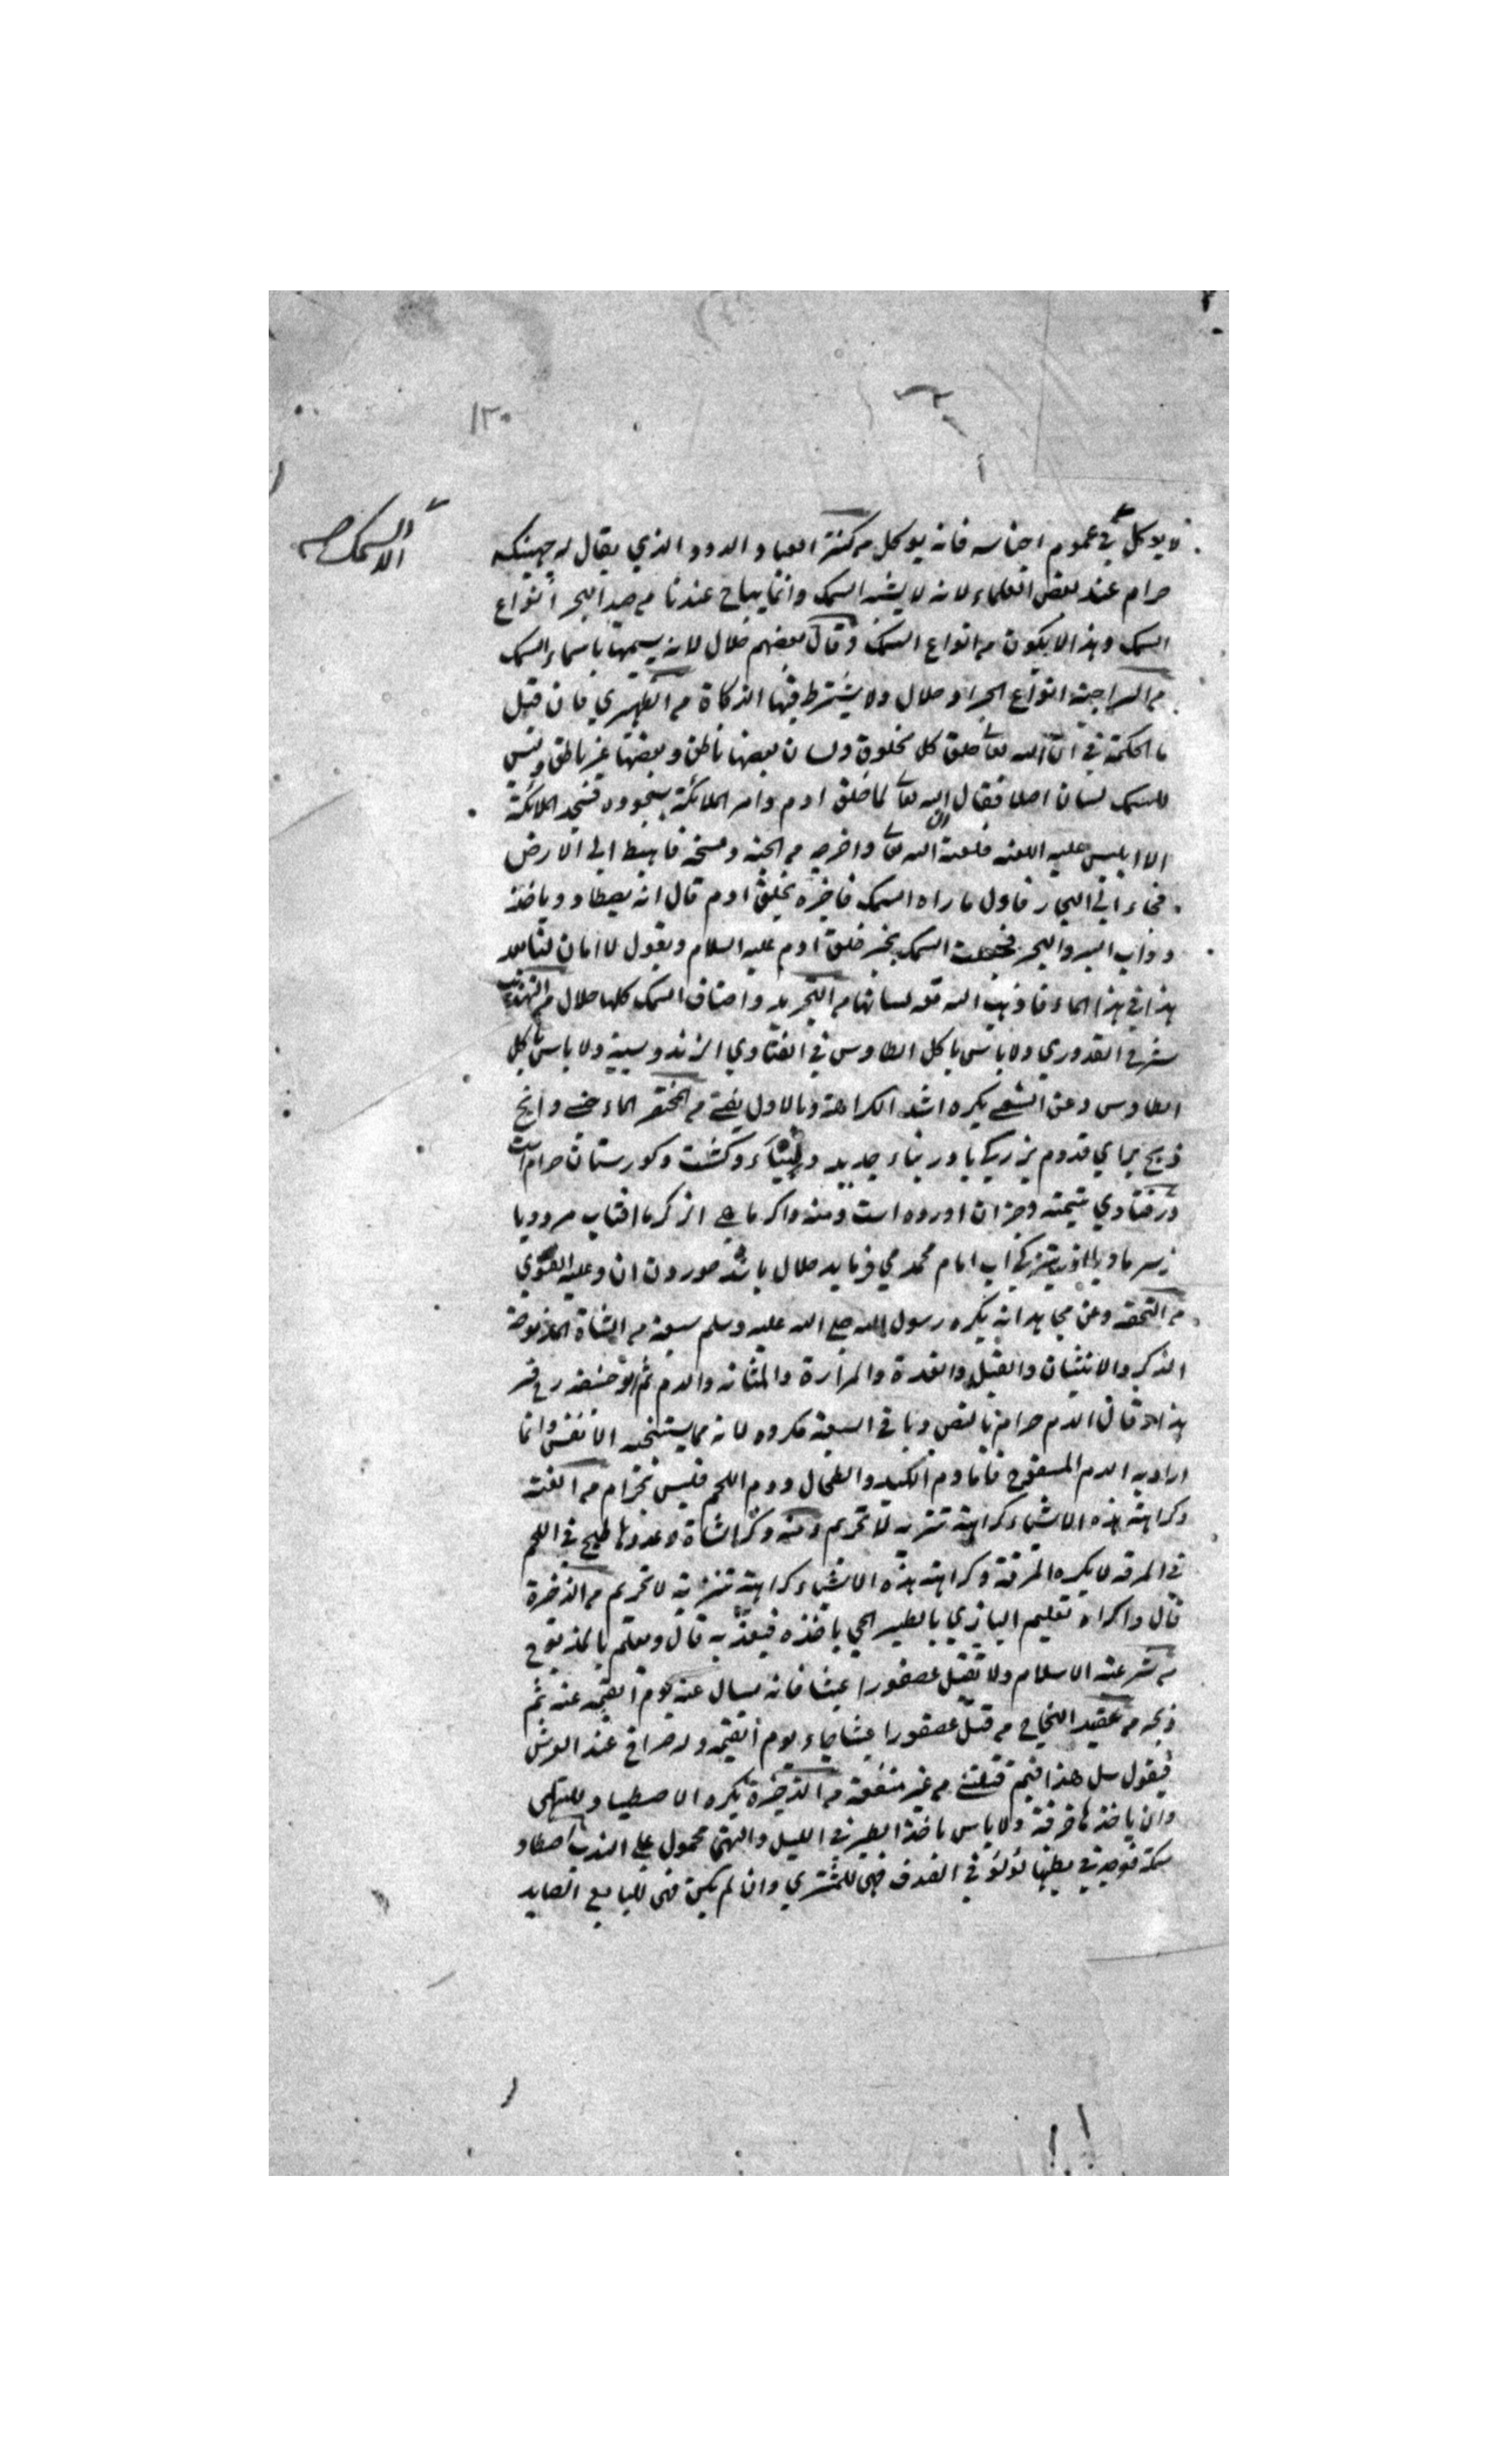 ١٣٠
الا السمك
لا يوكل في عموم اجناسه فانه يوكل من كنز العباد الدود الذي يقال له جهينكه
حرام عند بعض العلماء لانه لا يشبه السمك وانما يباح عندنا من صيد البحر انواع
السمك وهذا لا يكون من انواع السمك وقال بعضهم حلال لانه يسمى باسماء السمك
من السراجية انواع الجراد حلال ولا يشترط فيها الذكاة من الظهيري فان قيل
ما الحكمة في ان الله تعالى خلق كل مخلوق ولسان بعضها ناطق وبعضها غير ناطق وليس
للسمك لسان اصلا فقال ان الله تعالى لما خلق ادم وامر الملائكة بسجوده فسجد الملائكة
الا ابليس عليه اللعنه فلعنه الله تعالى واخرجه من الجنة ومسخه فاهبط الى الارض
فجاء الى البحار فاول ما راه السمك فاخبره بخلق ادم قال انه يصطاد وياخذ
دواب البر والبحر فجعلت السمك بخبر خلق ادم عليه السلام ويقول لا امان لنا بعد
هذا في هذا الماء فاذهب الله تعالى لسانها من التجريد واصناف السمك كلها حلال من التهذيب
شرح القدوري ولا باس باكل الطاوس في الفتاوي الزندوسية ولا باس باكل
الطاوس وعن الشعبي يكره اشد الكراهة وبالاول يفتى من المختصر الماء وانچ
ذبح براي قدوم بزركي يا در بناء جديد و وكشت وكورستان حرام است
در فتاوي يتيميه وجز ان اورده است ومنه واكر ماهي از كرما افتاب مرد ويا
زسرما ويا از تيزكي اب امام محمد مي فرمايد حلال باشد خوردن ان وعليه الفتوي
من التحفه وعن مجاهد انه يكره رسول الله صلى الله عليه وسلم سبعة من الشاة المذبوحة
الذكر والانثيان والقبل والغدة والمرارة والمثانه والدم ثم ابو حنيفه رح فسر
هذا قال الدم حرام بالنص وباقي السبعة مكروه لانه مما يستخبثه الانفس وانما
اراد به الدم المسفوح فاما دم الكبد والطحال ودم اللحم فليس بحرام من الغنية
وكراهة هذه الاشياء كراهة تنزيه لا تحريم ومنه ذكر الشاة وغدودها طبخ في اللحم
في المرقه لا يكره المرقة وكراهة هذه الاشياء كراهة تنزيه لا تحريم من الذخيرة
قال واكره تعليم البازي بالطير الحي ياخذه فيعذبه قال ويعلم بالمذبوح
من شرعة الاسلام ولا تقتل عصفورا عبثا فانه يسال عنه يوم القيمة عنه ثم
ذبحه من عقيد النجاح من قتل عصفورا عبثا جاء يوم القيمه وله صراخ عند العرش
فيقول سل هذا فيم قتلني من غير منفعة من الذخيرة يكره الاصطياد للتلهى
وان ياخذها حرفة ولا باس باخذ الطير في الليل والنهى محمول على الندب اصطاد
سمكة فوجد في بطنها لؤلؤ في الصدف فهى للمشتري وان لم يكن فهى للبايع الصايد